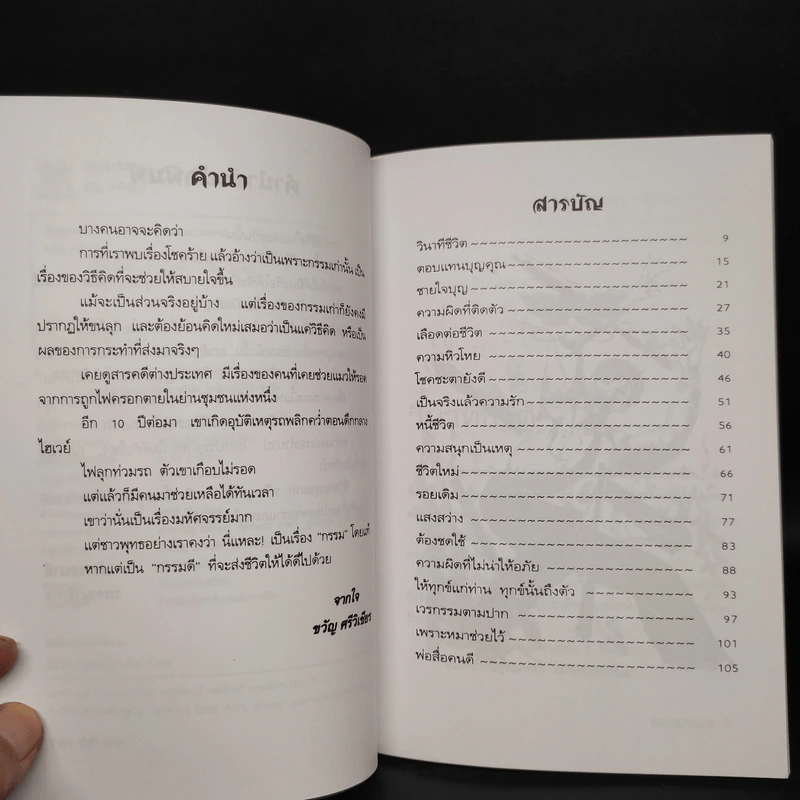 คำนำ
บางคนอาจจะคิดว่า
การที่เราพบเรื่องโชคร้าย แล้วอ้างว่าเป็นเพราะกรรมเก่านั้น เป็น
เรื่องของวิธีคิดที่จะช่วยให้สบายใจขึ้น
แม้จะเป็นส่วนจริงอยู่บ้าง แต่เรื่องของกรรมเก่าก็ยังคงมี
ปรากฏให้ขนลุก และต้องย้อนคิดใหม่เสมอว่าเป็นแค่วิธีคิด หรือเป็น
ผลของการกระทำที่ส่งมาจริงๆ
เคยดูสารคดีต่างประเทศ มีเรื่องของคนที่เคยช่วยแมวให้รอด
จากการถูกไฟครอกตายในย่านชุมชนแห่งหนึ่ง
อีก 10 ปีต่อมา เขาเกิดอุบัติเหตุรถพลิกคว่ำตอนดึกกลาง
ไฮเวย์
ไฟลุกท่วมรถ ตัวเขาเกือบไม่รอด
แต่แล้วก็มีคนมาช่วยเหลือได้ทันเวลา
เขาว่านั่นเป็นเรื่องมหัศจรรย์มาก
แต่ชาวพุทธอย่างเราคงว่า นี่แหละ! เป็นเรื่อง "กรรม" โดยแท้
หากแต่เป็น "กรรมดี" ที่จะส่งชีวิตให้ได้ดีไปด้วย
จากใจ
ขวัญ ศรีวิเชียร
สารบัญ
วินาทีชีวิต ~~~~~~~~~~~~~~~~~~~~~~~~ 9
ตอบแทนบุญคุณ ~~~~~~~~~~~~~~~~~~~~ 15
ชายใจบุญ ~~~~~~~~~~~~~~~~~~~~~~~~ 21
ความผิดที่ติดตัว ~~~~~~~~~~~~~~~~~~~~ 27
เลือดต่อชีวิต ~~~~~~~~~~~~~~~~~~~~~~~ 35
ความหิวโหย ~~~~~~~~~~~~~~~~~~~~~~~ 40
โชคชะตายังดี ~~~~~~~~~~~~~~~~~~~~~~ 46
เป็นจริงแล้วความรัก ~~~~~~~~~~~~~~~~~~ 51
หนี้ชีวิต ~~~~~~~~~~~~~~~~~~~~~~~~~~ 56
ความสนุกเป็นเหตุ ~~~~~~~~~~~~~~~~~~~ 61
ชีวิตใหม่ ~~~~~~~~~~~~~~~~~~~~~~~~~ 66
รอยเดิม ~~~~~~~~~~~~~~~~~~~~~~~~~ 71
แสงสว่าง ~~~~~~~~~~~~~~~~~~~~~~~~ 77
ต้องชดใช้ ~~~~~~~~~~~~~~~~~~~~~~~~ 83
ความผิดที่ไม่น่าให้อภัย ~~~~~~~~~~~~~~~~ 88
ให้ทุกข์แก่ท่าน ทุกข์นั้นถึงตัว ~~~~~~~~~~~~ 93
เวรกรรมตามปาก ~~~~~~~~~~~~~~~~~~~ 97
เพราะหมาช่วยไว้ ~~~~~~~~~~~~~~~~~~~ 101
พ่อสื่อคนดี ~~~~~~~~~~~~~~~~~~~~~~~ 105